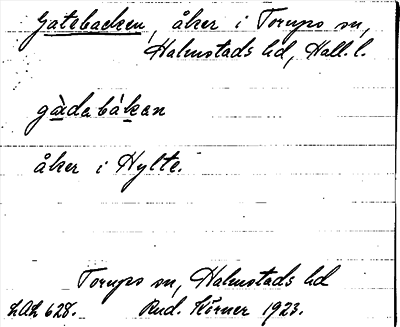 Gatebacken, åker i Torups sn,
Halmstads hd, Hall. l.
gàdabákan
åker i Hylte.
Torups sn, Halmstads hd
LAL 628. Rud. Störner 1923.